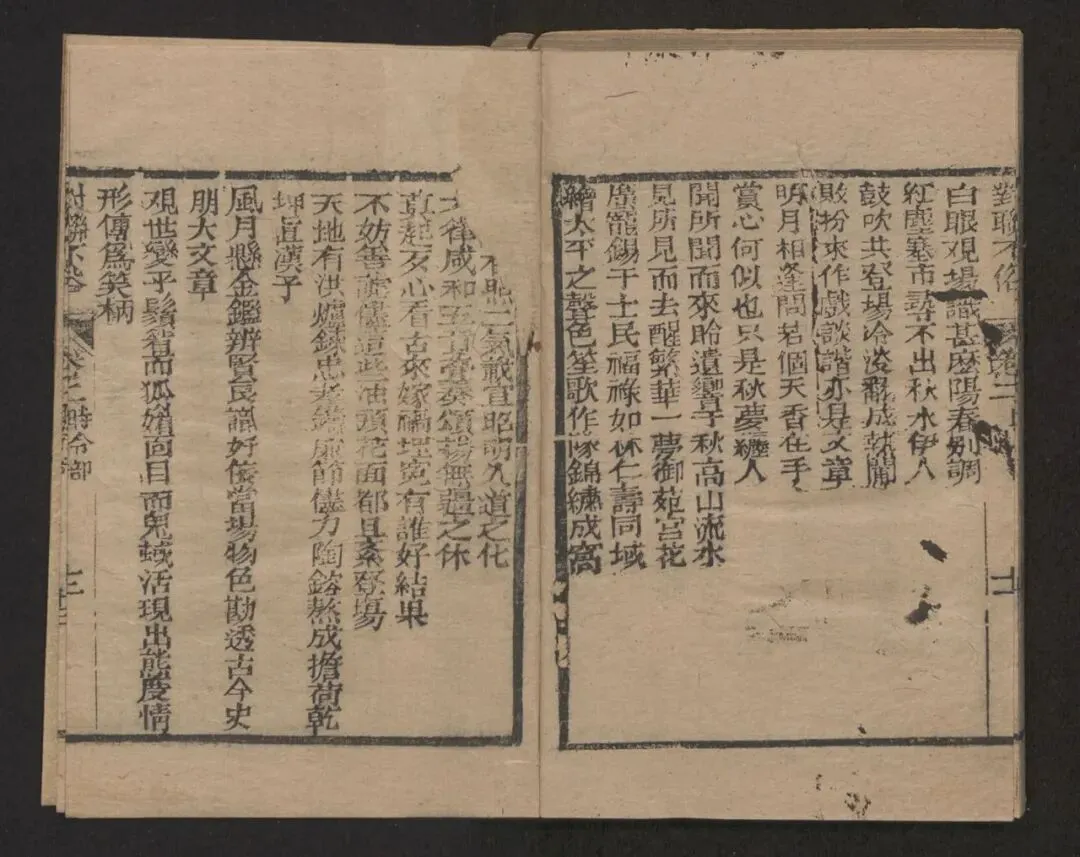 對聯不俗 卷二
白眼觀場識甚麽陽春別調
紅塵塞市尋不出秋水伊人
鼓吹共登場冷淡翻成熱鬧
敗粉來作戲談諧亦是文章
明月相逢問若個天香在手
賞心何似也只是秋夢纏人
聞所聞而來聆遺響于秋高山流水
見所見而去醒繁華一夢御苑宮花
慶寵錫于士民福祿如林仁壽同域
繪太平之聲色笙歌作隊錦繡成窩
二氣載宣昭朗久道之化
律咸和 頌揚無疆之休
直 歹心看古來嫁禍埋冤有誰好結果
不妨善 這些油頭花面都且紊登場
天地有洪爐錄忠孝鑄廉節儘力陶鎔熬成擔荷乾
坤眞漢子
風月懸金鑑辨賢良識好佞當場物色勘透古今史
朋大文章
觀世變乎鬚眉而狐媚面目而鬼蜮活現出態度情
形傳爲笑柄
對聯不俗 卷二 時令部
十二